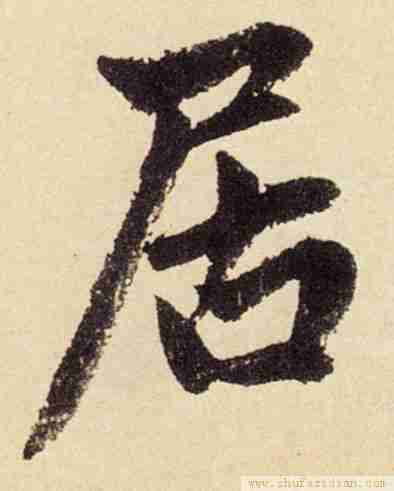 居
www.shufazidian.com